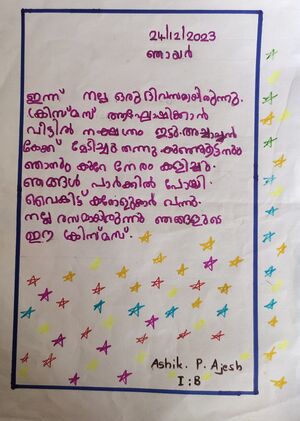 24/12/2023
ഞായർ
ഇന്ന് നല്ല ഒരു ദിവസമായിരുന്നു.
ക്രിസ്മസ് ആഘോഷിക്കാൻ
വീട്ടിൽ നക്ഷത്രം ഇട്ടു. അച്ചാച്ചൻ
കേക്ക് മേടിച്ചു തന്നു കുഞ്ഞൂട്ടനും
ഞാനും കുറേ നേരം കളിച്ചു.
ഞങ്ങൾ പാർക്കിൽ പോയി.
വൈകിട്ട് കരോളുകാർ വന്നു.
നല്ല രസമായിരുന്നു ഞങ്ങളുടെ
ഈ ക്രിസ്മസ്.
Ashik. P. Ajesh
I : B